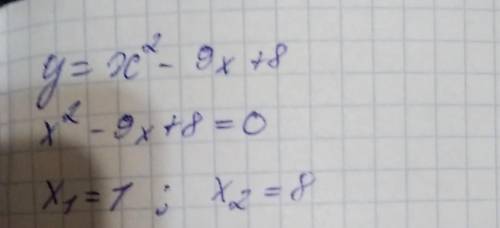 y = x² - 9x + 8
x² - 9x + 8 = 0
x₁ = 1 ; x₂ = 8